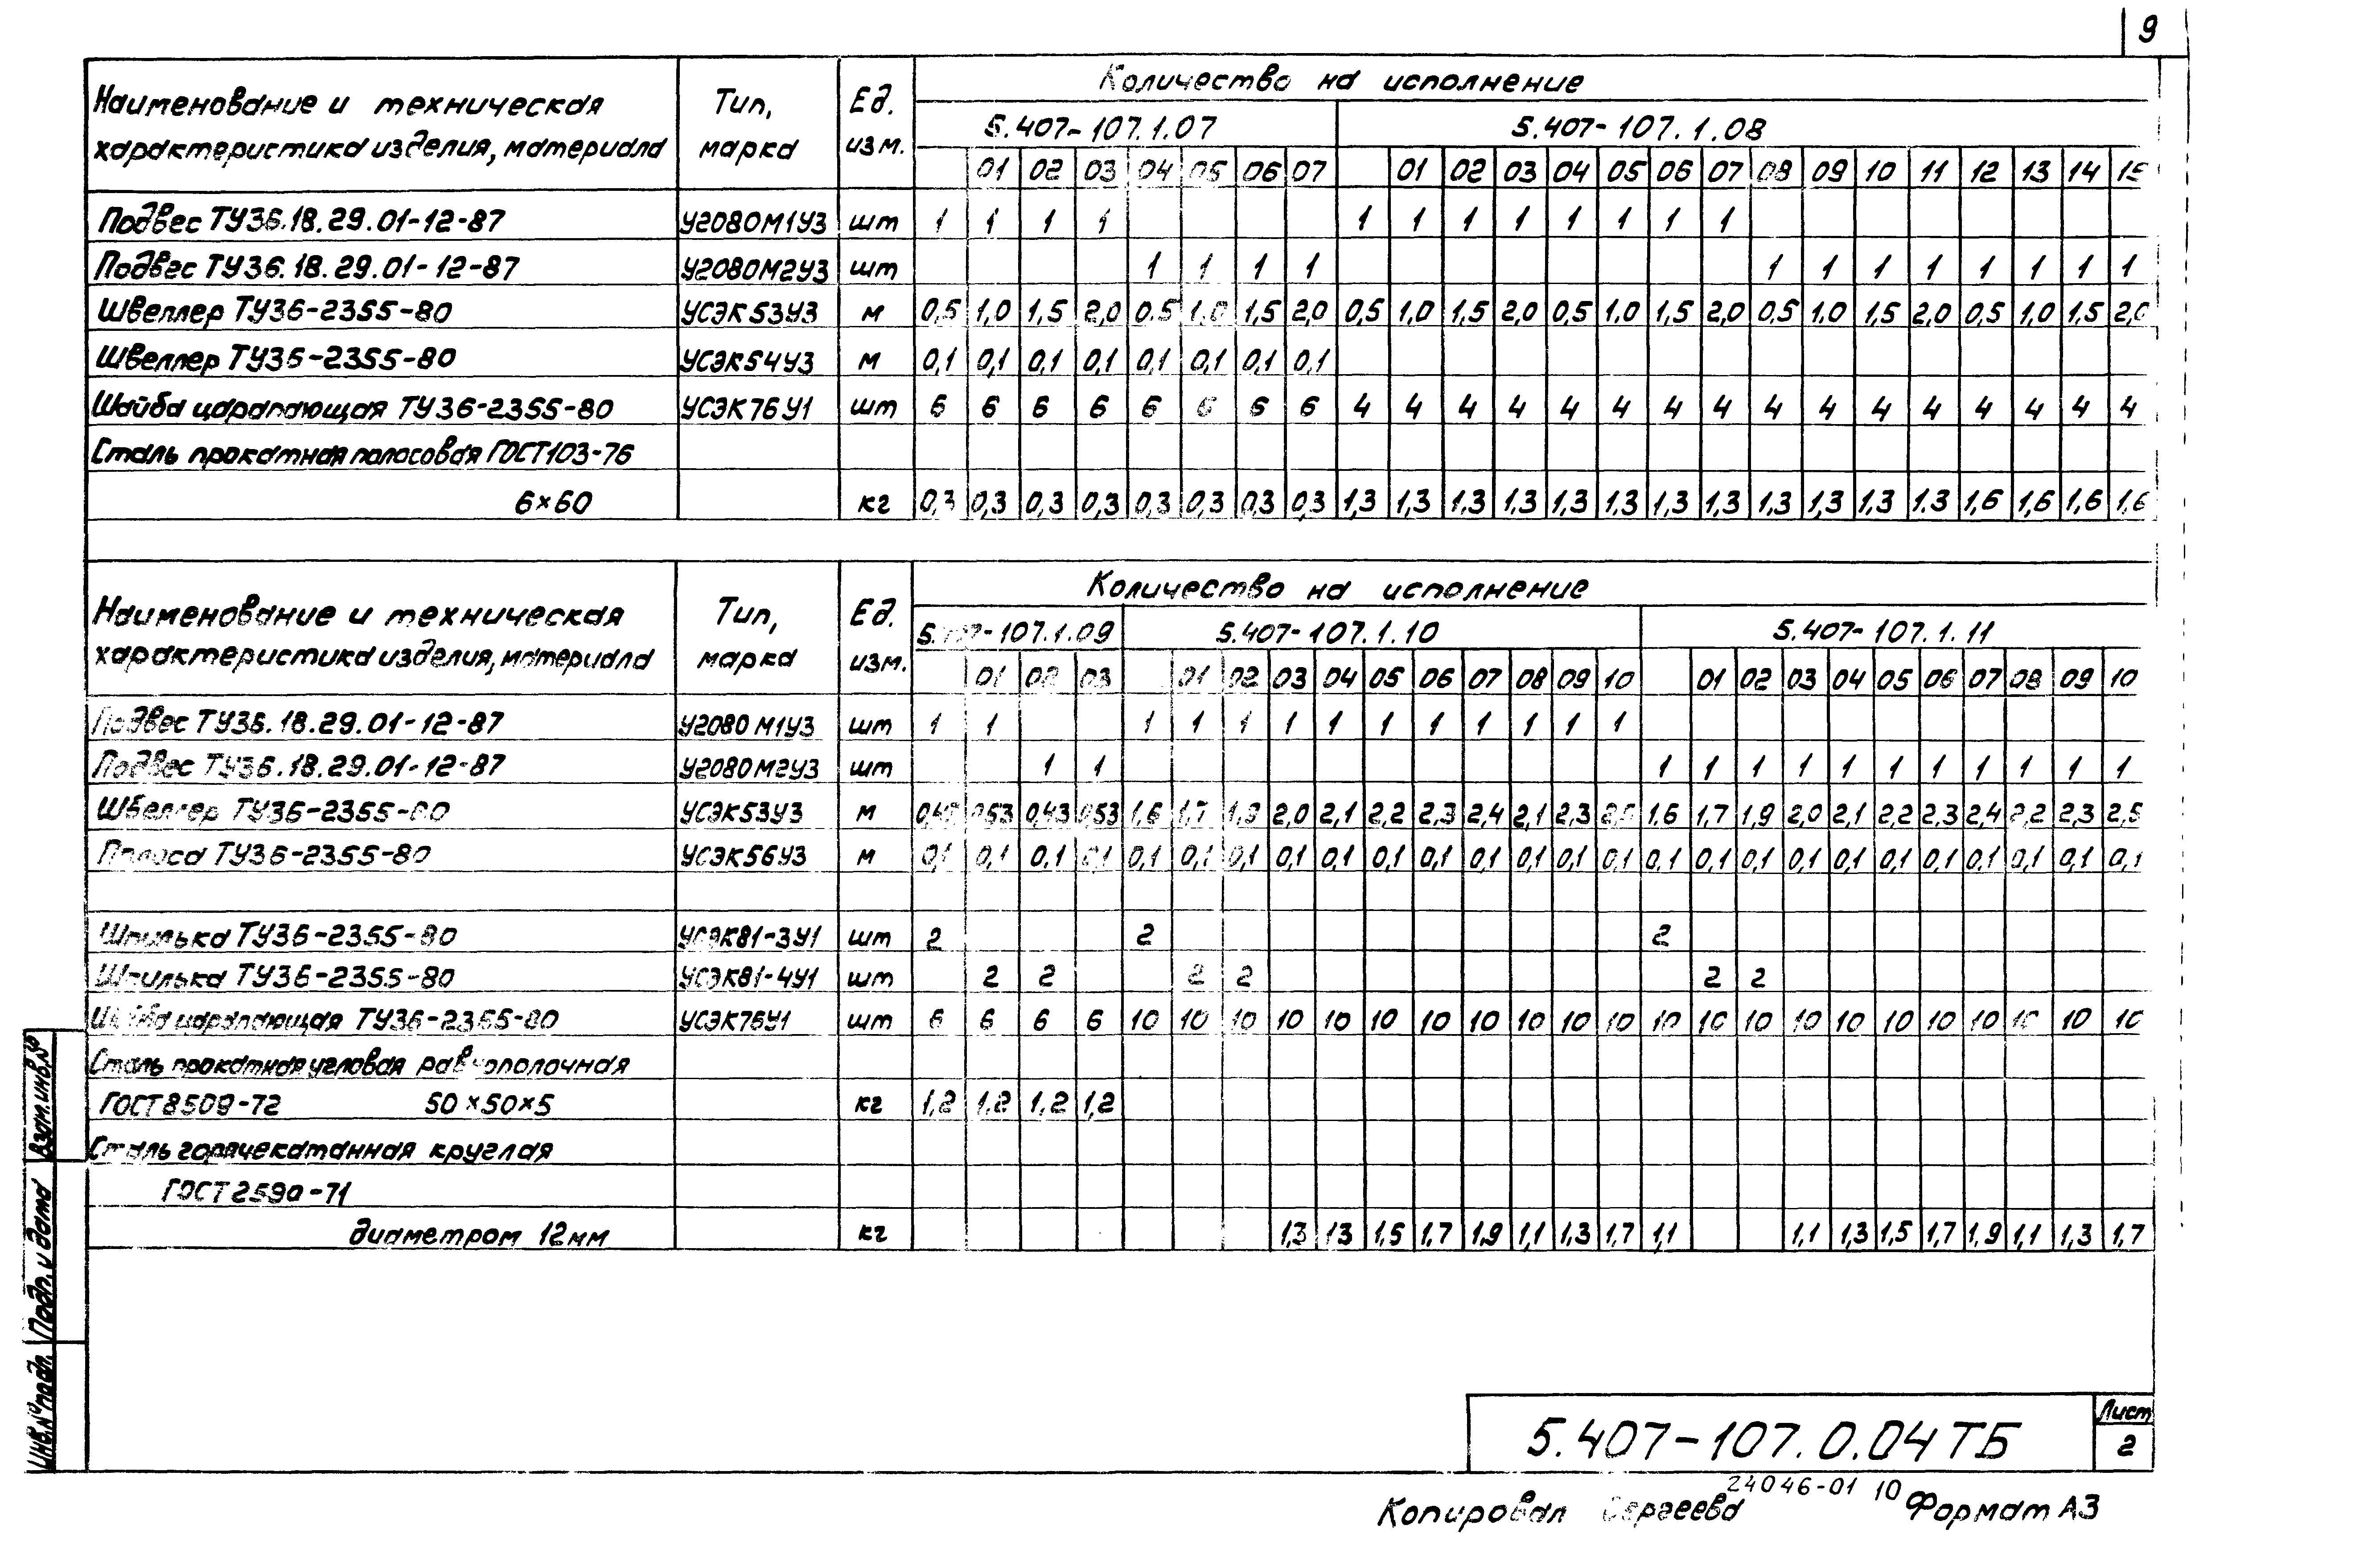 9
Наименование и техническая характеристика изделия, материала Тип, марка Ед. изм. Количество на исполнение
5.407-107.1.07 5.407-107.1.08
01 02 03 04 05 06 07 01 02 03 04 05 06 07 08 09 10 11 12 13 14 15
Подвес ТУ36.18.29.01-12-87 У2080М1У3 шт 1 1 1 1 1 1 1 1 1 1 1 1
Подвес ТУ36.18.29.01-12-87 У2080М2У3 шт 1 1 1 1 1 1 1 1 1 1 1 1
Швеллер ТУ36-2355-80 УСЭК53У3 м 0,5 1,0 1,5 2,0 0,5 1,0 1,5 2,0 0,5 1,0 1,5 2,0 0,5 1,0 1,5 2,0 0,5 1,0 1,5 2,0 0,5 1,0 1,5 2,0
Швеллер ТУ36-2355-80 УСЭК54У3 м 0,1 0,1 0,1 0,1 0,1 0,1 0,1 0,1
Шайба царапающая ТУ36-2355-80 УСЭК76У1 шт 6 6 6 6 6 6 6 6 4 4 4 4 4 4 4 4 4 4 4 4 4 4 4 4
Сталь прокатная полосовая ГОСТ103-76
6×60 кг 0,3 0,3 0,3 0,3 0,3 0,3 0,3 0,3 1,3 1,3 1,3 1,3 1,3 1,3 1,3 1,3 1,3 1,3 1,3 1.3 1,6 1,6 1,6 1,6
Наименование и техническая характеристика изделия, материала Тип, марка Ед. изм. Количество на исполнение
-107.1.09 5.407-107.1.10 5.407-107.1.11
01 02 03 01 02 03 04 05 06 07 08 09 10 01 02 03 04 05 06 07 08 09 10
Подвес ТУ36.18.29.01-12-87 У2080М1У3 шт 1 1 1 1 1 1 1 1 1 1 1 1 1
Подвес ТУ36.18.29.01-12-87 У2080М2У3 шт 1 1 1 1 1 1 1 1 1 1 1 1 1
Швеллер ТУ36-2355-80 УСЭК53У3 м 0,43 0,53 0,43 0,53 1,6 1,7 1,9 2,0 2,1 2,2 2,3 2,4 2,1 2,3 2,5 1.6 1,7 1,9 2,0 2,1 2,2 2,3 2,4 2,2 2,3 2,5
Полоса ТУ36-2355-80 УСЭК56У3 м 0,1 0,1 0,1 0,1 0,1 0,1 0,1 0,1 0,1 0,1 0,1 0,1 0,1 0,1 0,1 0,1 0,1 0,1 0,1 0,1 0,1 0,1 0,1 0,1 0,1 0,1
Шпилька ТУ36-2355-80 УСЭК81-3У1 шт 2 2 2
Шпилька ТУ36-2355-80 УСЭК81-4У1 шт 2 2 2 2 2 2
Шайба царапающая ТУ36-2355-80 УСЭК76У1 шт 6 6 6 6 10 10 10 10 10 10 10 10 10 10 10 10 10 10 10 10 10 10 10 10 10 10
Сталь прокатная угловая равнополочная
ГОСТ8509-72 50×50×5 кг 1,2 1,2 1,2 1,2
Сталь горячекатанная круглая
ГОСТ2590-71
диаметром 12мм кг 1,3 1,3 1,5 1,7 1,9 1,1 1,3 1,7 1,1 1,1 1,3 1,5 1,7 1,9 1,1 1,3 1,7
Взам.инв.№
Подп. и дата
Инв.№подл.
5.407-107.0.04ТБ
Лист
2
24046-01 10
Копировал Сергеева Формат А3